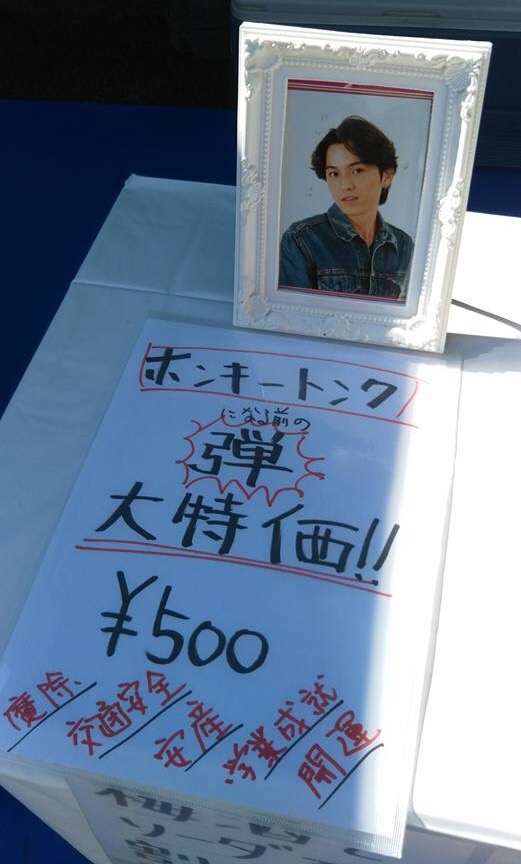 ホンキートンク
になる前の
弾
大特価!!
¥500
魔除
交通安全
安産
学業成就
開運
リーダー